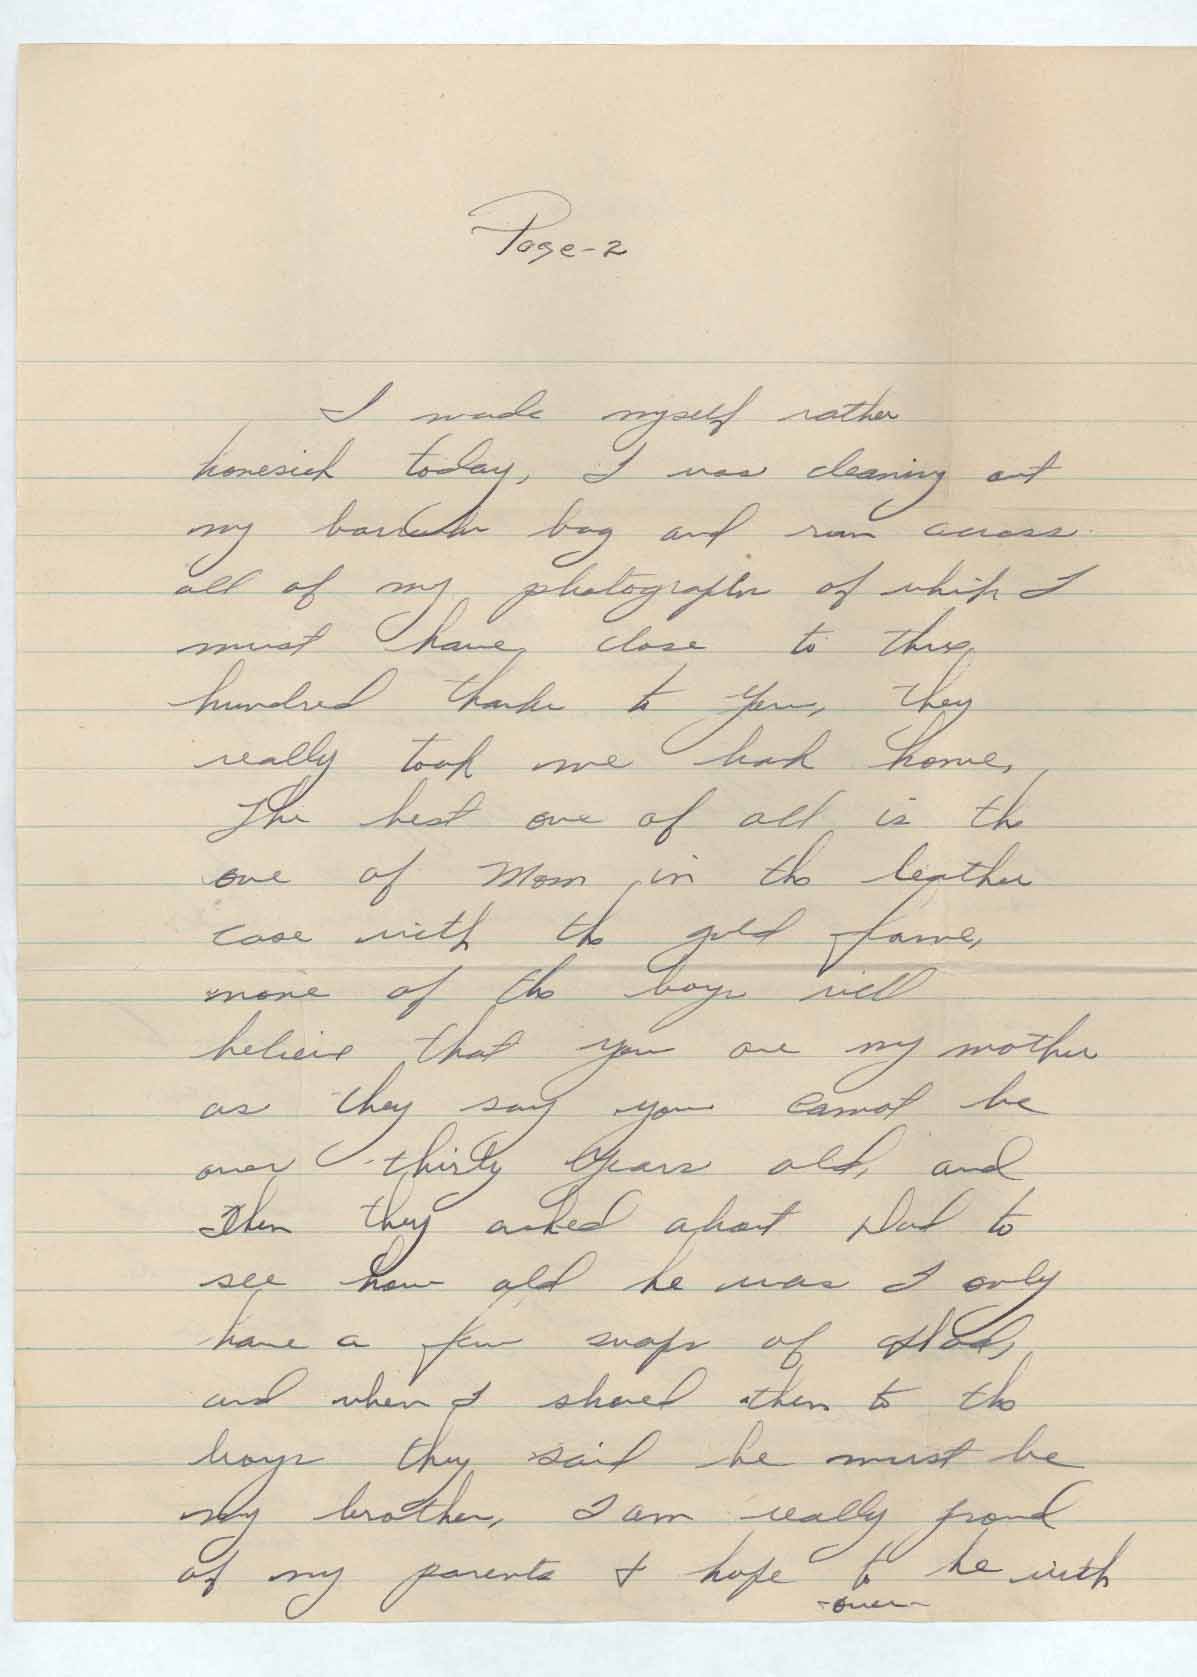 Page-2
I made myself rather
homesick today, I was cleaning out
my barrack bag and run across
all of my photographs of which I
must have close to three
hundred thanks to you, they
really took me back home,
The best one of all is the
one of Mom in the leather
case with the gold frame,
none of the boys will
believe that you are my mother
as they say you cannot be
over thirty years old, and
then they asked about Dad to
see how old he was I only
have a few snaps of Dad,
and when I showed them to the
boys they said he must be
my brother, I am really proud
of my parents & hope to be with
-over-